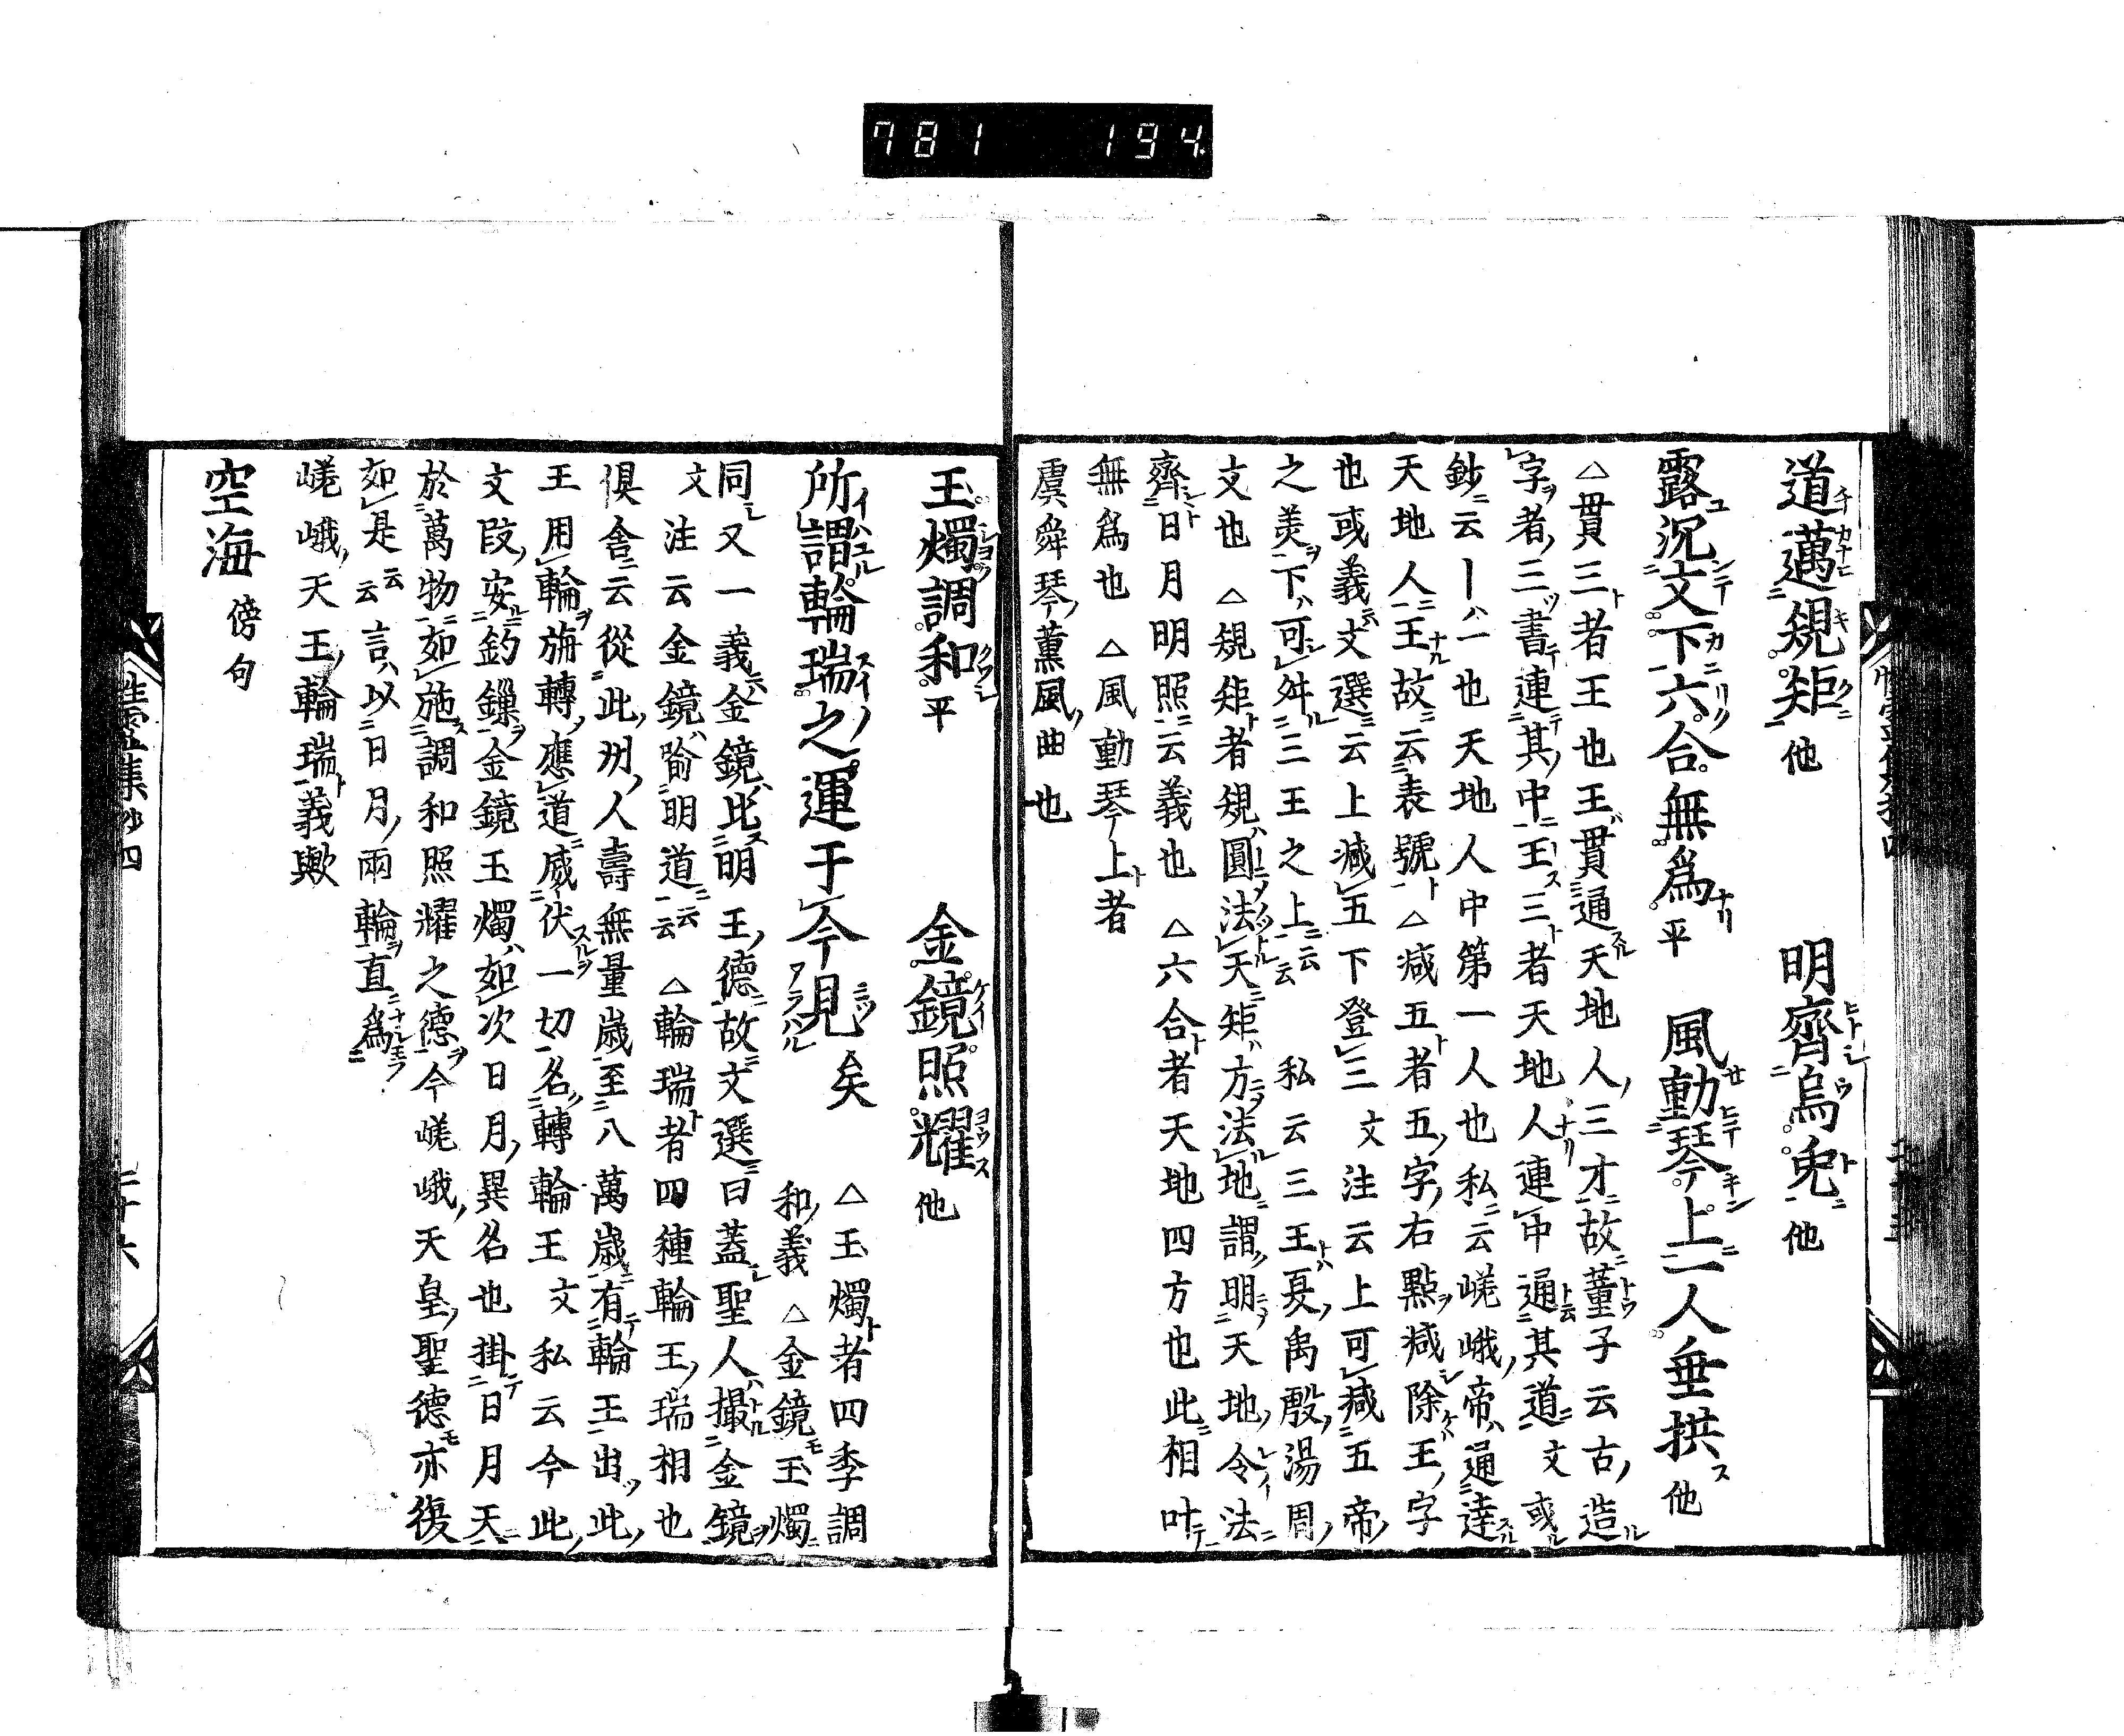 781 194
道邁規矩他 明齊烏兎他
露沉文下六合無爲平 風動琴上一人垂拱他
△貫三者王也王貫通天地人三才故董子云古造
字者三書連其中王三者天地人連中通其道文或
鈔云｜一也天地人中第一人也私云嵯峨帝通達
天地人王故云表號△減五者五字右點減除王字
也或義文選云上減五下登三文注云上可減五帝
之美下可舛三王之上云云 私云三王夏禹殷湯周
文也△規矩者規圓法天矩方法地謂明天地令法
齊日月明照云義也△六合者天地四方也此相叶
無爲也△風動琴上者
虞舜琴薰風曲也
玉燭調和平 金鏡照耀他
所謂輪瑞之運于今見矣 △玉燭者四季調
和義△金鏡玉燭
同又一義金鏡比明王德故文選曰蓋聖人撮金鏡
文注云金鏡喻明道云云△輪瑞者四種輪王瑞相也
俱舍云從此洲人壽無量歲至八萬歲有輪王出此
王用輪旃轉應道威伏一切名轉輪王文私云今此
文段安釣鏁金鏡玉燭如次日月異名也掛日月天
於萬物如施調和照耀之德今嵯峨天皇聖德亦復
如是云云言以日月兩輪直爲
嵯峨天王輪瑞義歟
空海傍句
性靈集鈔四 二十六